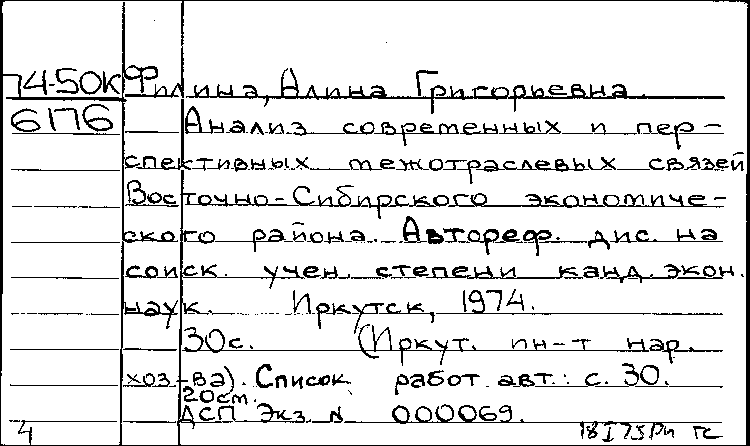 74-50К Филина, Алина Григорьевна.
6176 Анализ современных и пер-
спективных межотраслевых связей
Восточно-Сибирского экономиче-
ского района. Автореф. дис. на
соиск. учен. степени канд. экон.
наук. Иркутск, 1974.
30с. (Иркут. ин-т нар.
хоз-ва). Список работ авт.: с. 30.
20см.
ДСП Экз. N 000069.
4 18 I 75